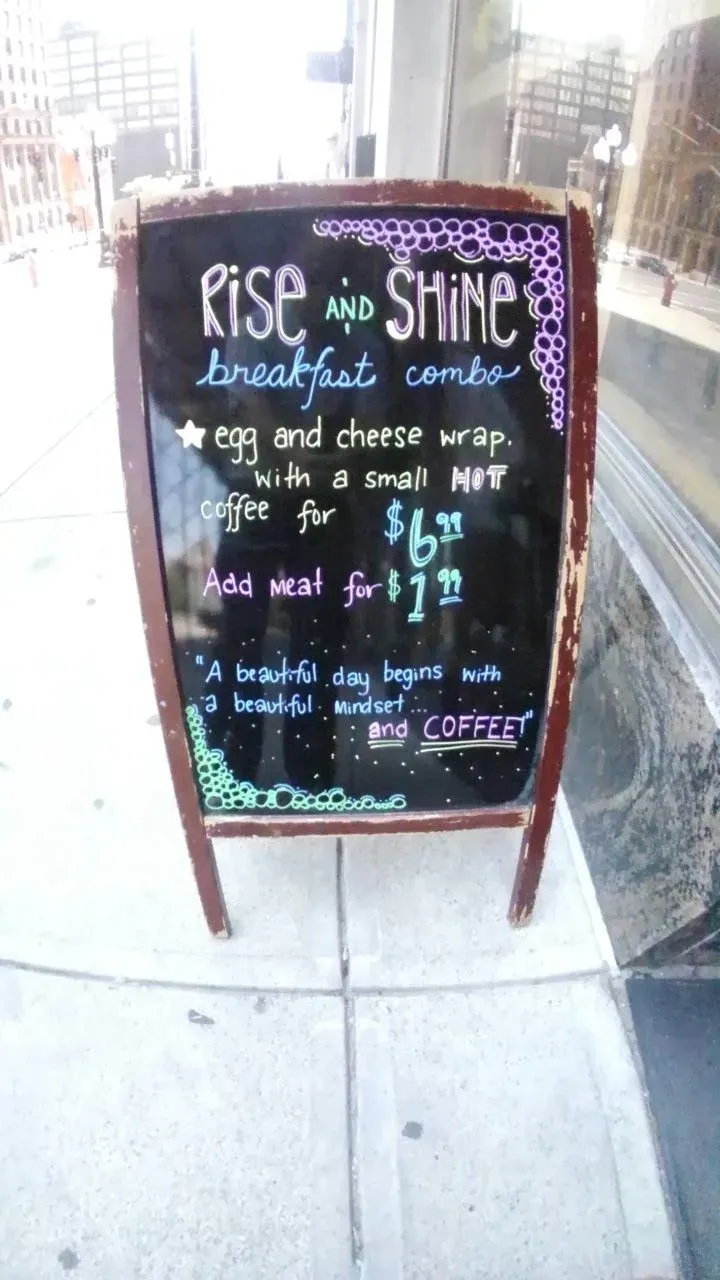 RiSE AND SHiNE
breakfast combo
egg and cheese wrap.
with a small HOT
coffee for $6.99
Add Meat for $1.99
"A beautiful day begins with
a beautiful Mindset...
and COFFEE!"